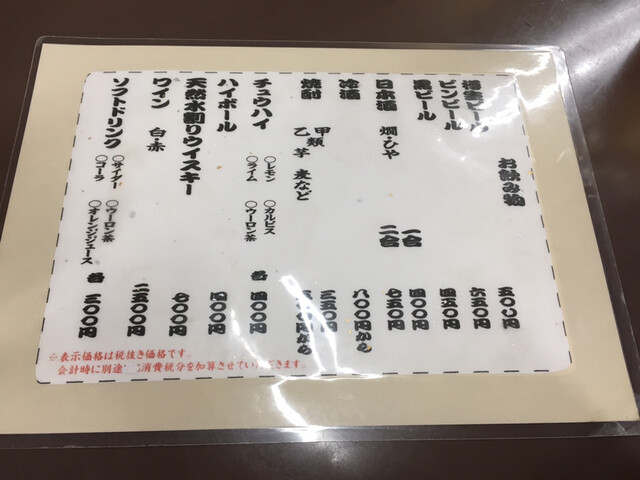 お飲み物
ビール 五〇〇円
ビンビール 六五〇円
黒ビール 四五〇円
日本酒 燗・ひや 一合 四〇〇円
二合 七五〇円
冷酒 八〇〇円から
焼酎 甲類 三五〇円
乙 芋 麦など 〇〇円から
チュウハイ ○レモン ○カルピス 各 四〇〇円
○ライム ○ウーロン茶
ハイボール 四〇〇円
天然水割りウイスキー 七〇〇円
ワイン 白・赤 二五〇〇円
ソフトドリンク ○サイダー ○ウーロン茶 各 三〇〇円
○コーラ ○オレンジジュース
※表示価格は税抜き価格です。
会計時に別途 消費税分を加算させていただきます。